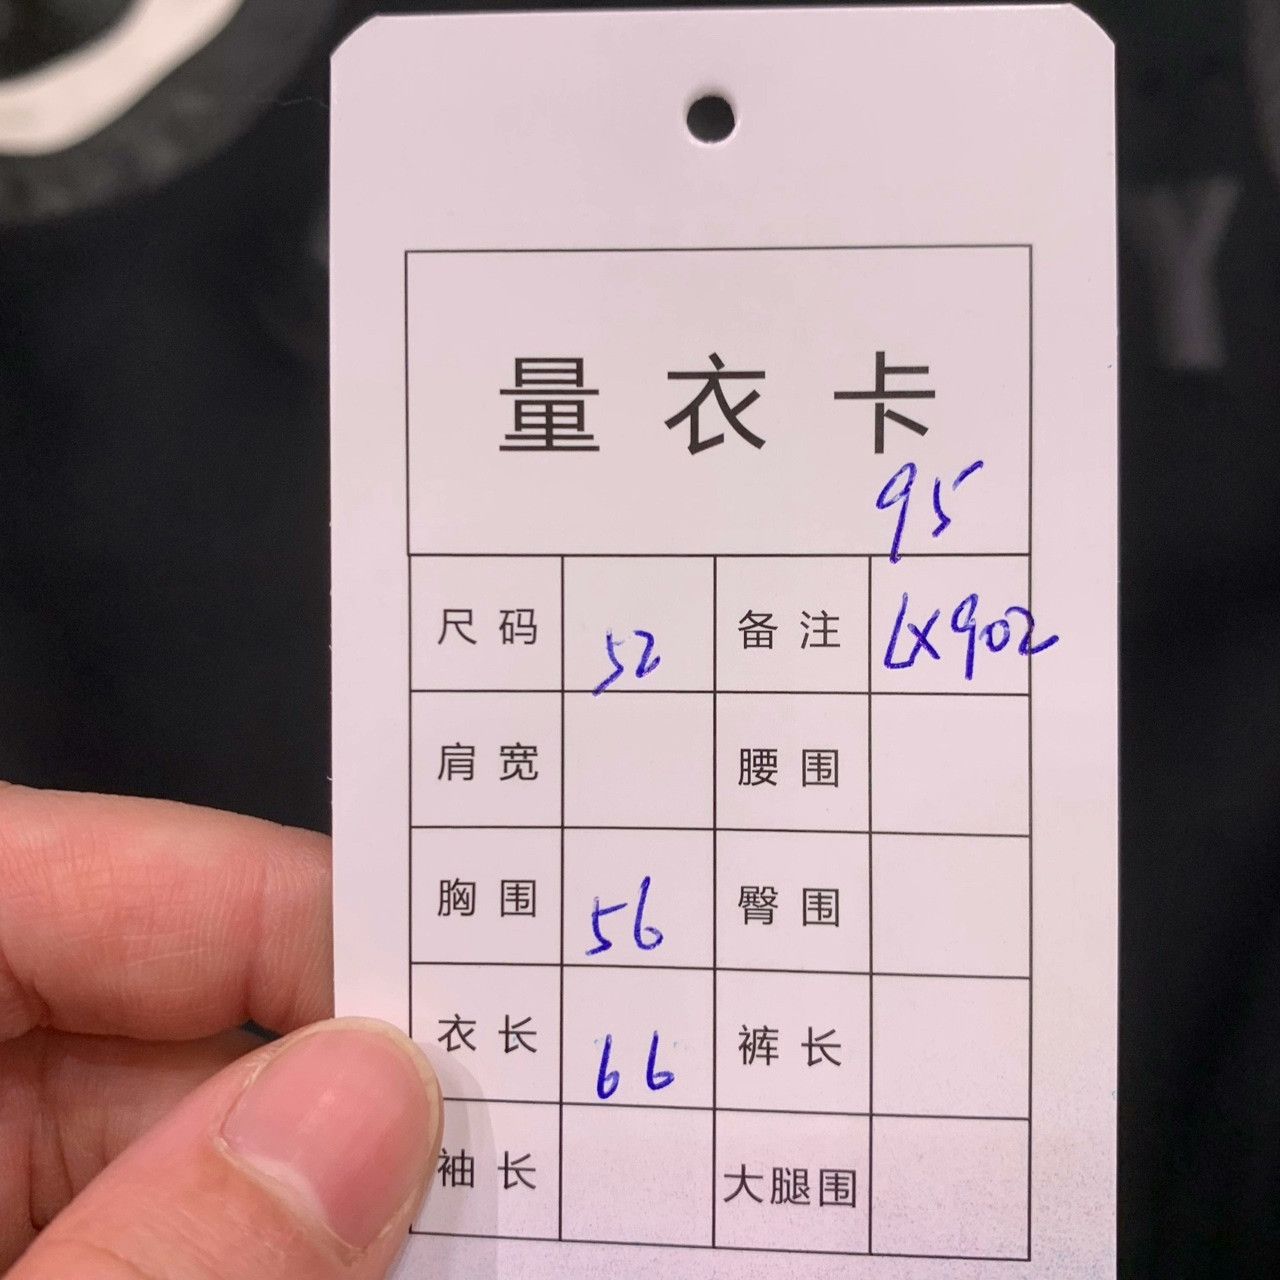 量衣卡
95
尺码 52 备注 LX902
肩宽 腰围
胸围 56 臀围
衣长 66 裤长
袖长 大腿围
Y